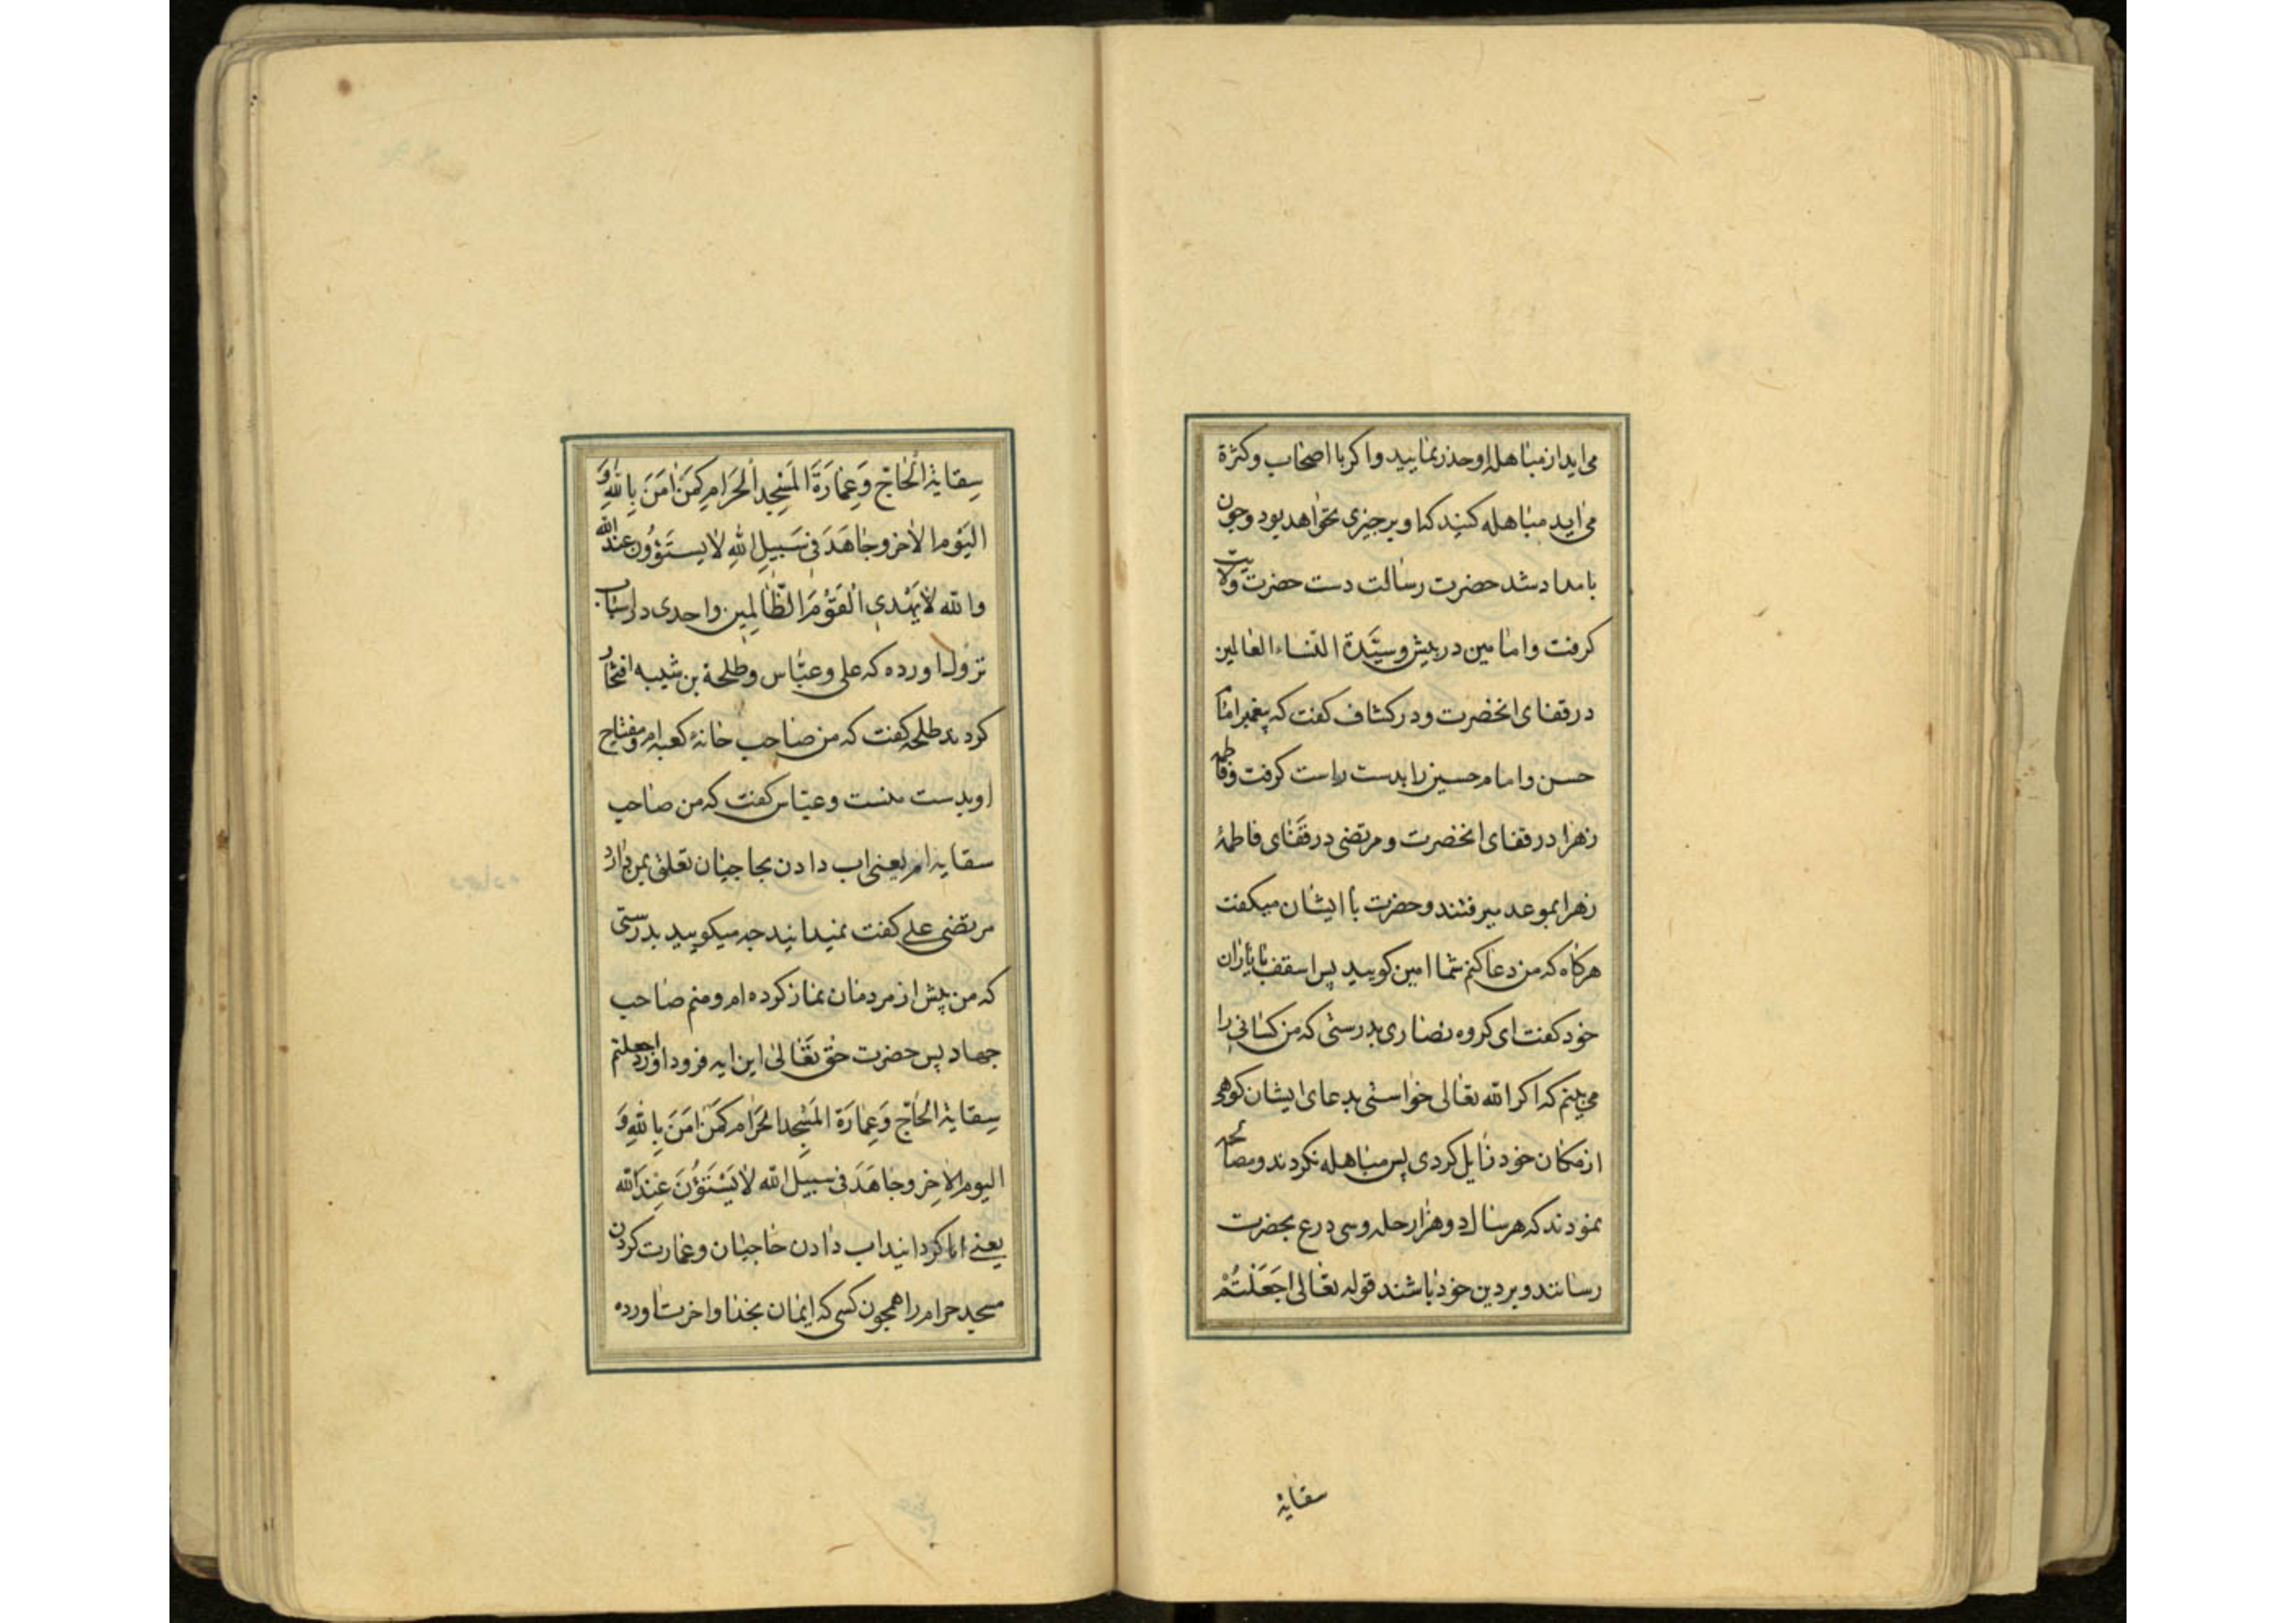 می اید از مباهله او حذر نمایید و اکر با اصحاب و کثرة
می اید مباهله کنید که او بر چیزی نخواهد بود و چون
بامداد شد حضرت رسالت دست حضرت ولایت
کرفت و امامین در پیش و سیّدة النّساء العالمین
در قفای انحضرت و در کشاف کفت که پیغمبر امام
حسن و امام حسین را بدست راست کرفت و فاطمه
زهرا در قفای انحضرت و مرتضی در قفای فاطمهٔ
زهرا بموعد میرفتند و حضرت با ایشان میکفت
هرکاه که من دعا کنم شما امین کویید پس اسقف با یاران
خود کفت ای کروه نصاری بدرستی که من کسانی را
می بینم که اکر الله تعالی خواستی بدعای ایشان کوهی
از مکان خود زایل کردی پس مباهله نکردند و مصالحه
نمودند که هر سال دو هزار حله و سی درع بحضرت
رسانند و بر دین خود باشند قوله تعالی اَجَعَلْتُمْ
سقایة
سِقایَةَ الْحٰاجِّ وَعِمٰارَةَ المَسْجِدِ الْحَرٰامِ کَمَنْ اٰمَنَ بِاللّٰهِ وَ
الیَوْمِ الاٰخِرِ وجٰاهَدَ فی سَبیلِ اللهِ لاٰ یسْتَوُونَ عِنْدَ الله
والله لاٰ یَهْدِی الْقَوْمَ الظّٰالِمِین واحدی در اسباب
نزول اورده که علی و عبّاس و طلحة بن شیبه افتخار
کردند طلحه کفت که من صاحب خانهٔ کعبه ام و مفتاح
او بدست منست و عبّاس کفت که من صاحب
سقایه ام یعنی اب دادن بحاجیان تعلق بمن دارد
مرتضی علی کفت نمیدانید چه میکویید بدرستی
که من پیش از مردمان نماز کرده ام و منم صاحب
جهاد پس حضرت حق تَعٰالیٰ این ایه فرود اورد اجعلتم
سِقایَةَ الحٰاجِّ وَعِمٰارَةَ المَسْجِدِ الحَرٰامِ کَمَنْ اٰمَنَ بِاللّٰهِ وَ
الیومِ الاٰخِرِ وجٰاهَدَ فی سبیل الله لاٰ یَسْتَوُنَ عِنْدَ الله
یعنی ایا کردانید اب دادن حاجیان و عمارت کردن
مسجد حرام را همچون کسی که ایمان بخدا و اخرت اورده